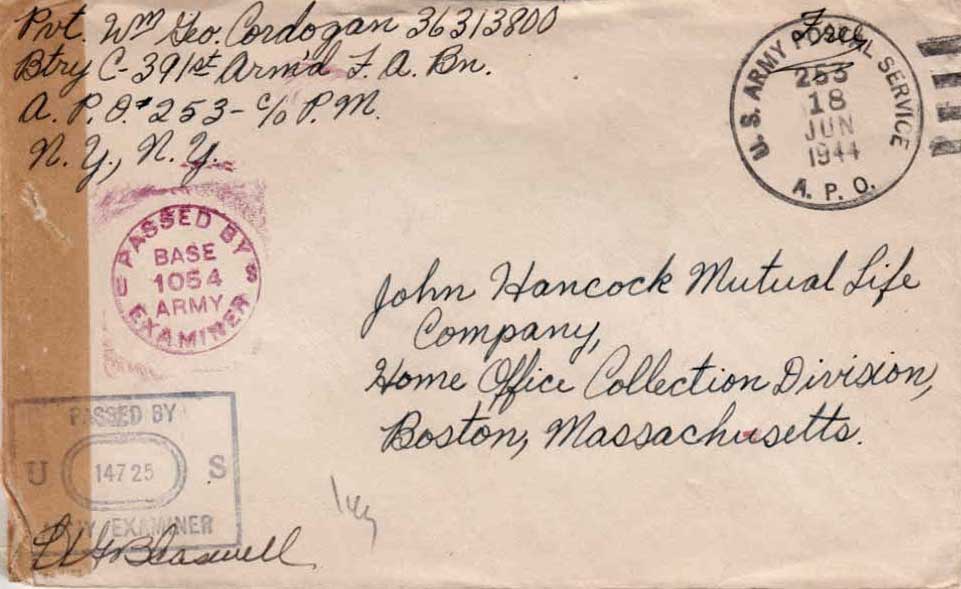 Pvt. Wm Geo. Cordogan 36313800
Btry C-391st Arm'd F. A. Bn.
A. P. O. #253 - c/o P. M.
N. Y., N. Y.
Free
U. S. ARMY POSTAL SERVICE
253
18
JUN
1944
A. P. O.
PASSED BY
BASE
1054
ARMY
EXAMINER
U S
John Hancock Mutual Life
Company,
Home Office Collection Division,
Boston, Massachusetts.
PASSED BY
U 14725 S
ARMY EXAMINER